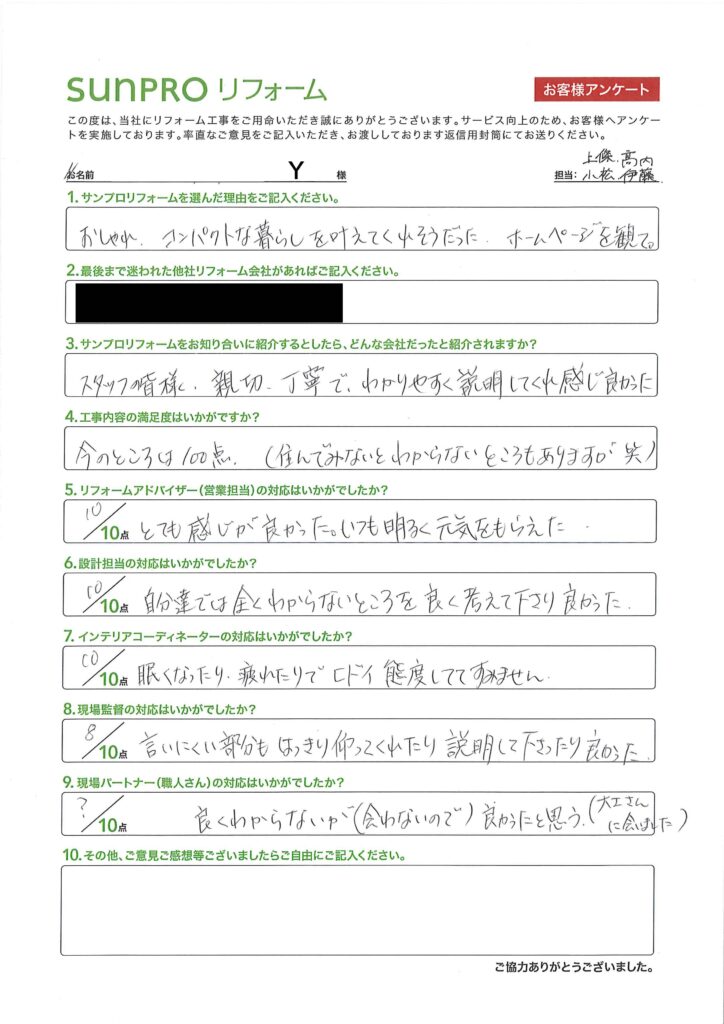 SUNPRO リフォーム
お客様アンケート
この度は、当社にリフォーム工事をご用命いただき誠にありがとうございます。サービス向上のため、お客様へアンケー
トを実施しております。率直なご意見をご記入いただき、お渡ししております返信用封筒にてお送りください。
お名前 Y 様
担当: 上條 高内
小松 伊藤
1. サンプロリフォームを選んだ理由をご記入ください。
おしゃれ、コンパクトな暮らしを叶えてくれそうだった、ホームページを観て。
2. 最後まで迷われた他社リフォーム会社があればご記入ください。
3. サンプロリフォームをお知り合いに紹介するとしたら、どんな会社だったと紹介されますか?
スタッフの皆様く、親切、丁寧で、わかりやすく説明してくれ感じ良かった
4. 工事内容の満足度はいかがですか?
今のところは100点. (住んでみないとわからないところもありますが 笑)
5. リフォームアドバイザー(営業担当)の対応はいかがでしたか?
10/10点 とても感じが良かった。いつも明るく元気をもらえた.
6. 設計担当の対応はいかがでしたか?
10/10点 自分達では全くわからないところを良く考えて下さり良かった.
7. インテリアコーディネーターの対応はいかがでしたか?
10/10点 眠くなったり、疲れたりでヒドイ態度しててすみません.
8. 現場監督の対応はいかがでしたか?
8/10点 言いにくい部分もはっきり仰ってくれたり説明して下さったり良かった.
9. 現場パートナー(職人さん)の対応はいかがでしたか?
?/10点 良くわからないが(会わないので)良かったと思う.(大工さん
に会いました)
10. その他、ご意見ご感想等ございましたらご自由にご記入ください。
ご協力ありがとうございました。